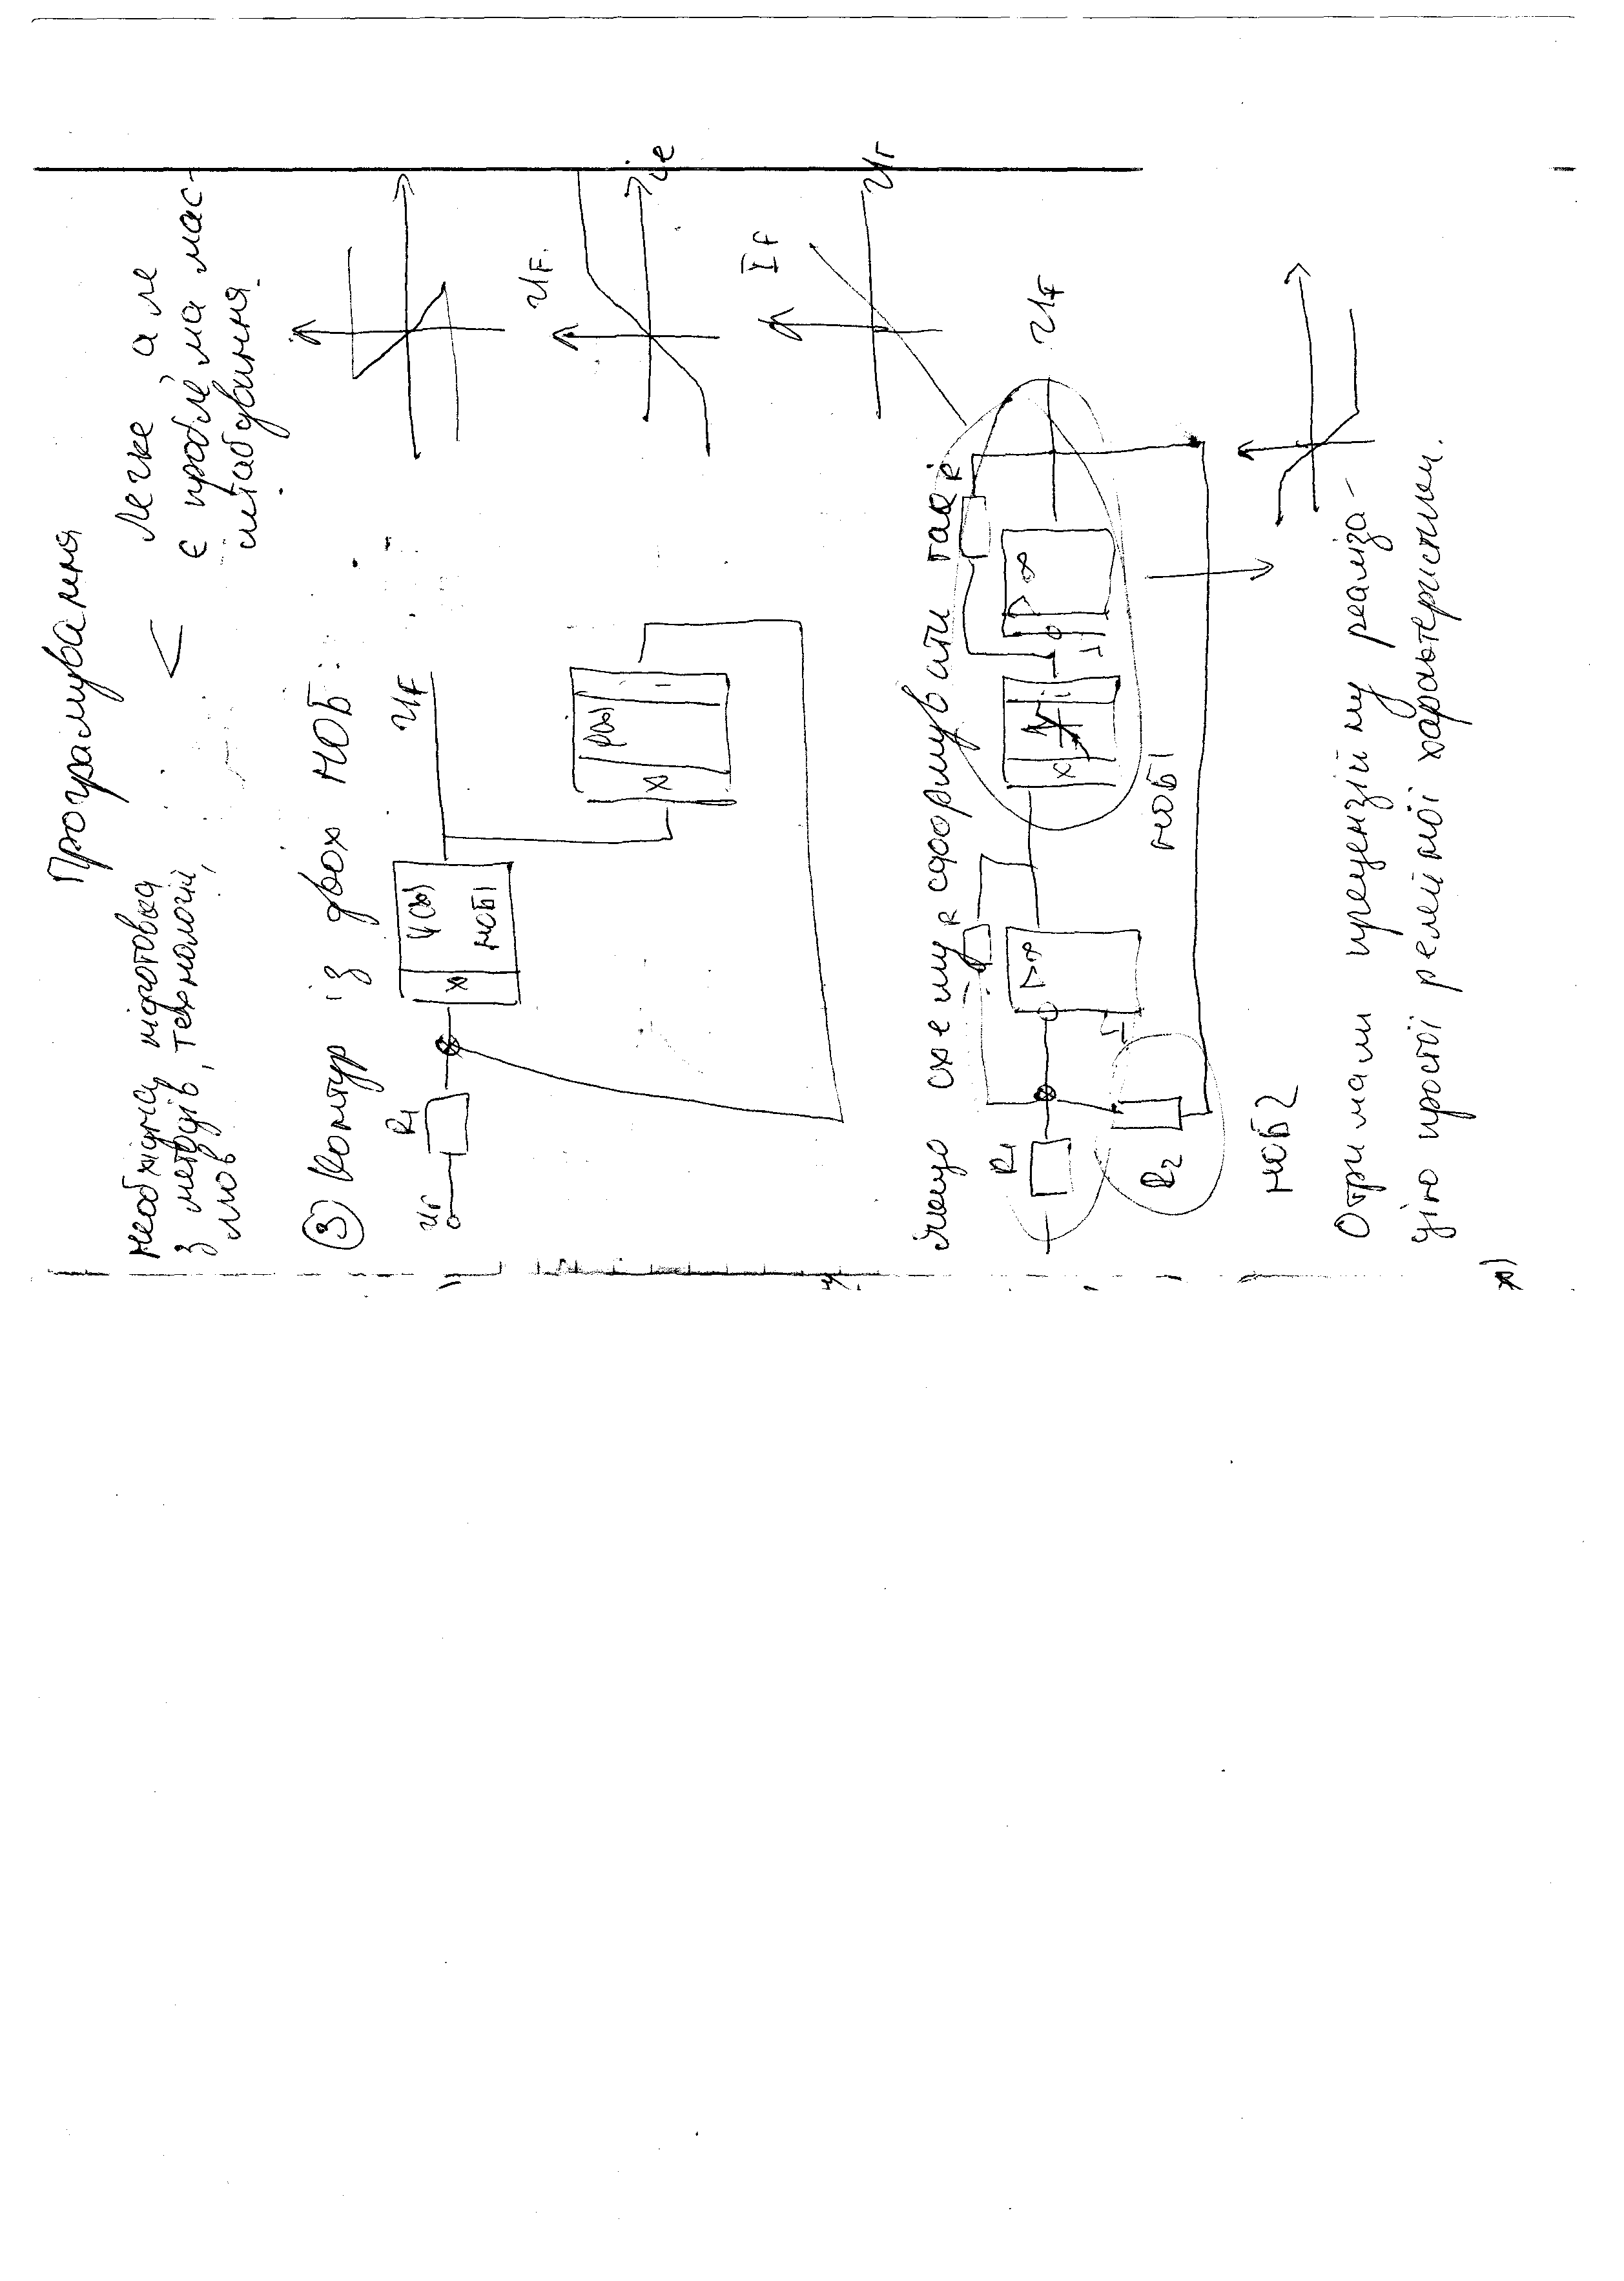 Програмування
Необхідна підготовка
з методів, технологій,
мов
<
Легке але
є проблема мас-
штабування.
③ Контур із двох НОБ:
Uг
R1
X
Ψ(x)
НОБ1
UF
X
P(x)
UF.
ie
IF
Uг
Якщо схему сформувати так
R1
R
▷∞
X
R
▷∞
UF
R2
НОБ1
НОБ2
Отримали прецензійну реаліза-
цію простої релейної характеристики.